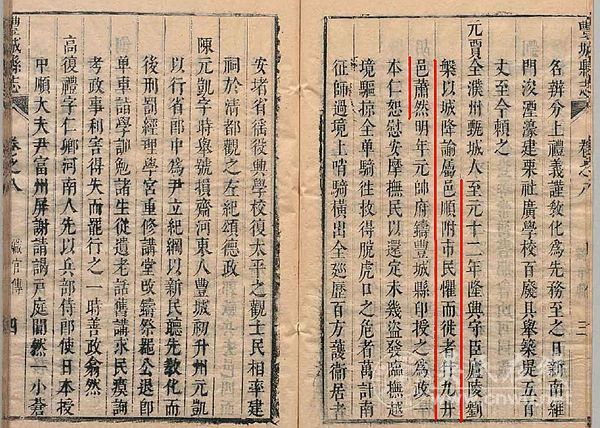 豐城縣志
卷之八
三
名辨分上禮義謹敎化爲先務至之日新南雄
門浚湮濠建粟社廣學校百廢具舉築堤五百
丈至今賴之
元賈全濮州甄城人至元十二年隆興守臣廬陵劉
槃以城降諭屬邑順附市民懼而徙者十九井
邑蕭然明年元帥府鑄豐城縣印授之爲政一
本仁恕慰安摩撫民以還定未幾盜發臨撫越
境驅掠全單騎往救得脫虎口之危者萬計南
征師過境上哨騎橫出全廵歷百方護衞居者
安堵省徭役興學校復太平之觀士民相率建
祠於都觀之左紀頌德政
陳元凱字時舉號損齋河東人豐城初升州元凱
以行省郎中爲尹立紀綱以新民聽先敎化而
後刑罰經理學宮重修講堂改鑄祭器公退卽
單車詣學訓勉諸生從遺老話舊講求民瘼詢
考政事利害得失而罷行之一時善政翕然
高復禮字仁卿河南人先以兵部侍郎使日本授
甲順大夫尹富州屏謝請謁戶庭闃然一小蒼
豐城縣志
卷之八
職官傳
四